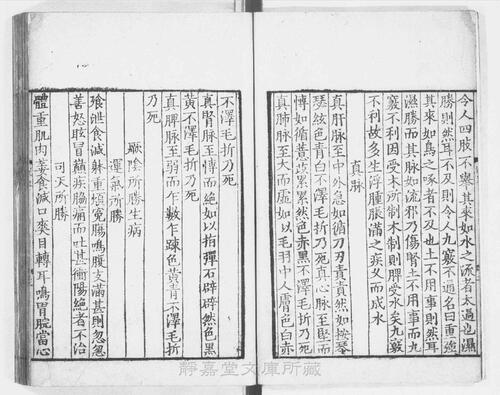 令人四肢不舉其來如水之流者太過也濕
勝則然耳不及則令人九竅不通名曰重強
其來如鳥之啄者不及也土不用事則然耳
滋勝而其脉如流邪乃傷腎土不用事而九
竅不利因受木所制木制則脾受水矣九竅
不利故多生浮腫脹滿之疾又而成水
真脉
真肝脉至中外急如循刀刃責責然如按琴
瑟絃色青白不澤毛折乃死真心脉至堅而
博如循薏苡累累然色赤黑不澤毛折乃死
真肺脉至大而虛如以毛羽中人膚色白赤
不澤毛折乃死
真腎脉至博而絕如以指彈石辟辟然色黑
黃不澤毛折乃死
真脾脉至弱而乍數乍踈色黃青不澤毛折
乃死
厥陰所勝生病
運氣所勝
飱泄食減躰重煩冤腸鳴腹支滿甚則忽忽
善怒眩冒巔疾脇痛而吐甚衝陽絕者不治
司天所勝
體重肌肉萎食減口爽目轉耳鳴胃脘當心
静嘉堂文庫所蔵